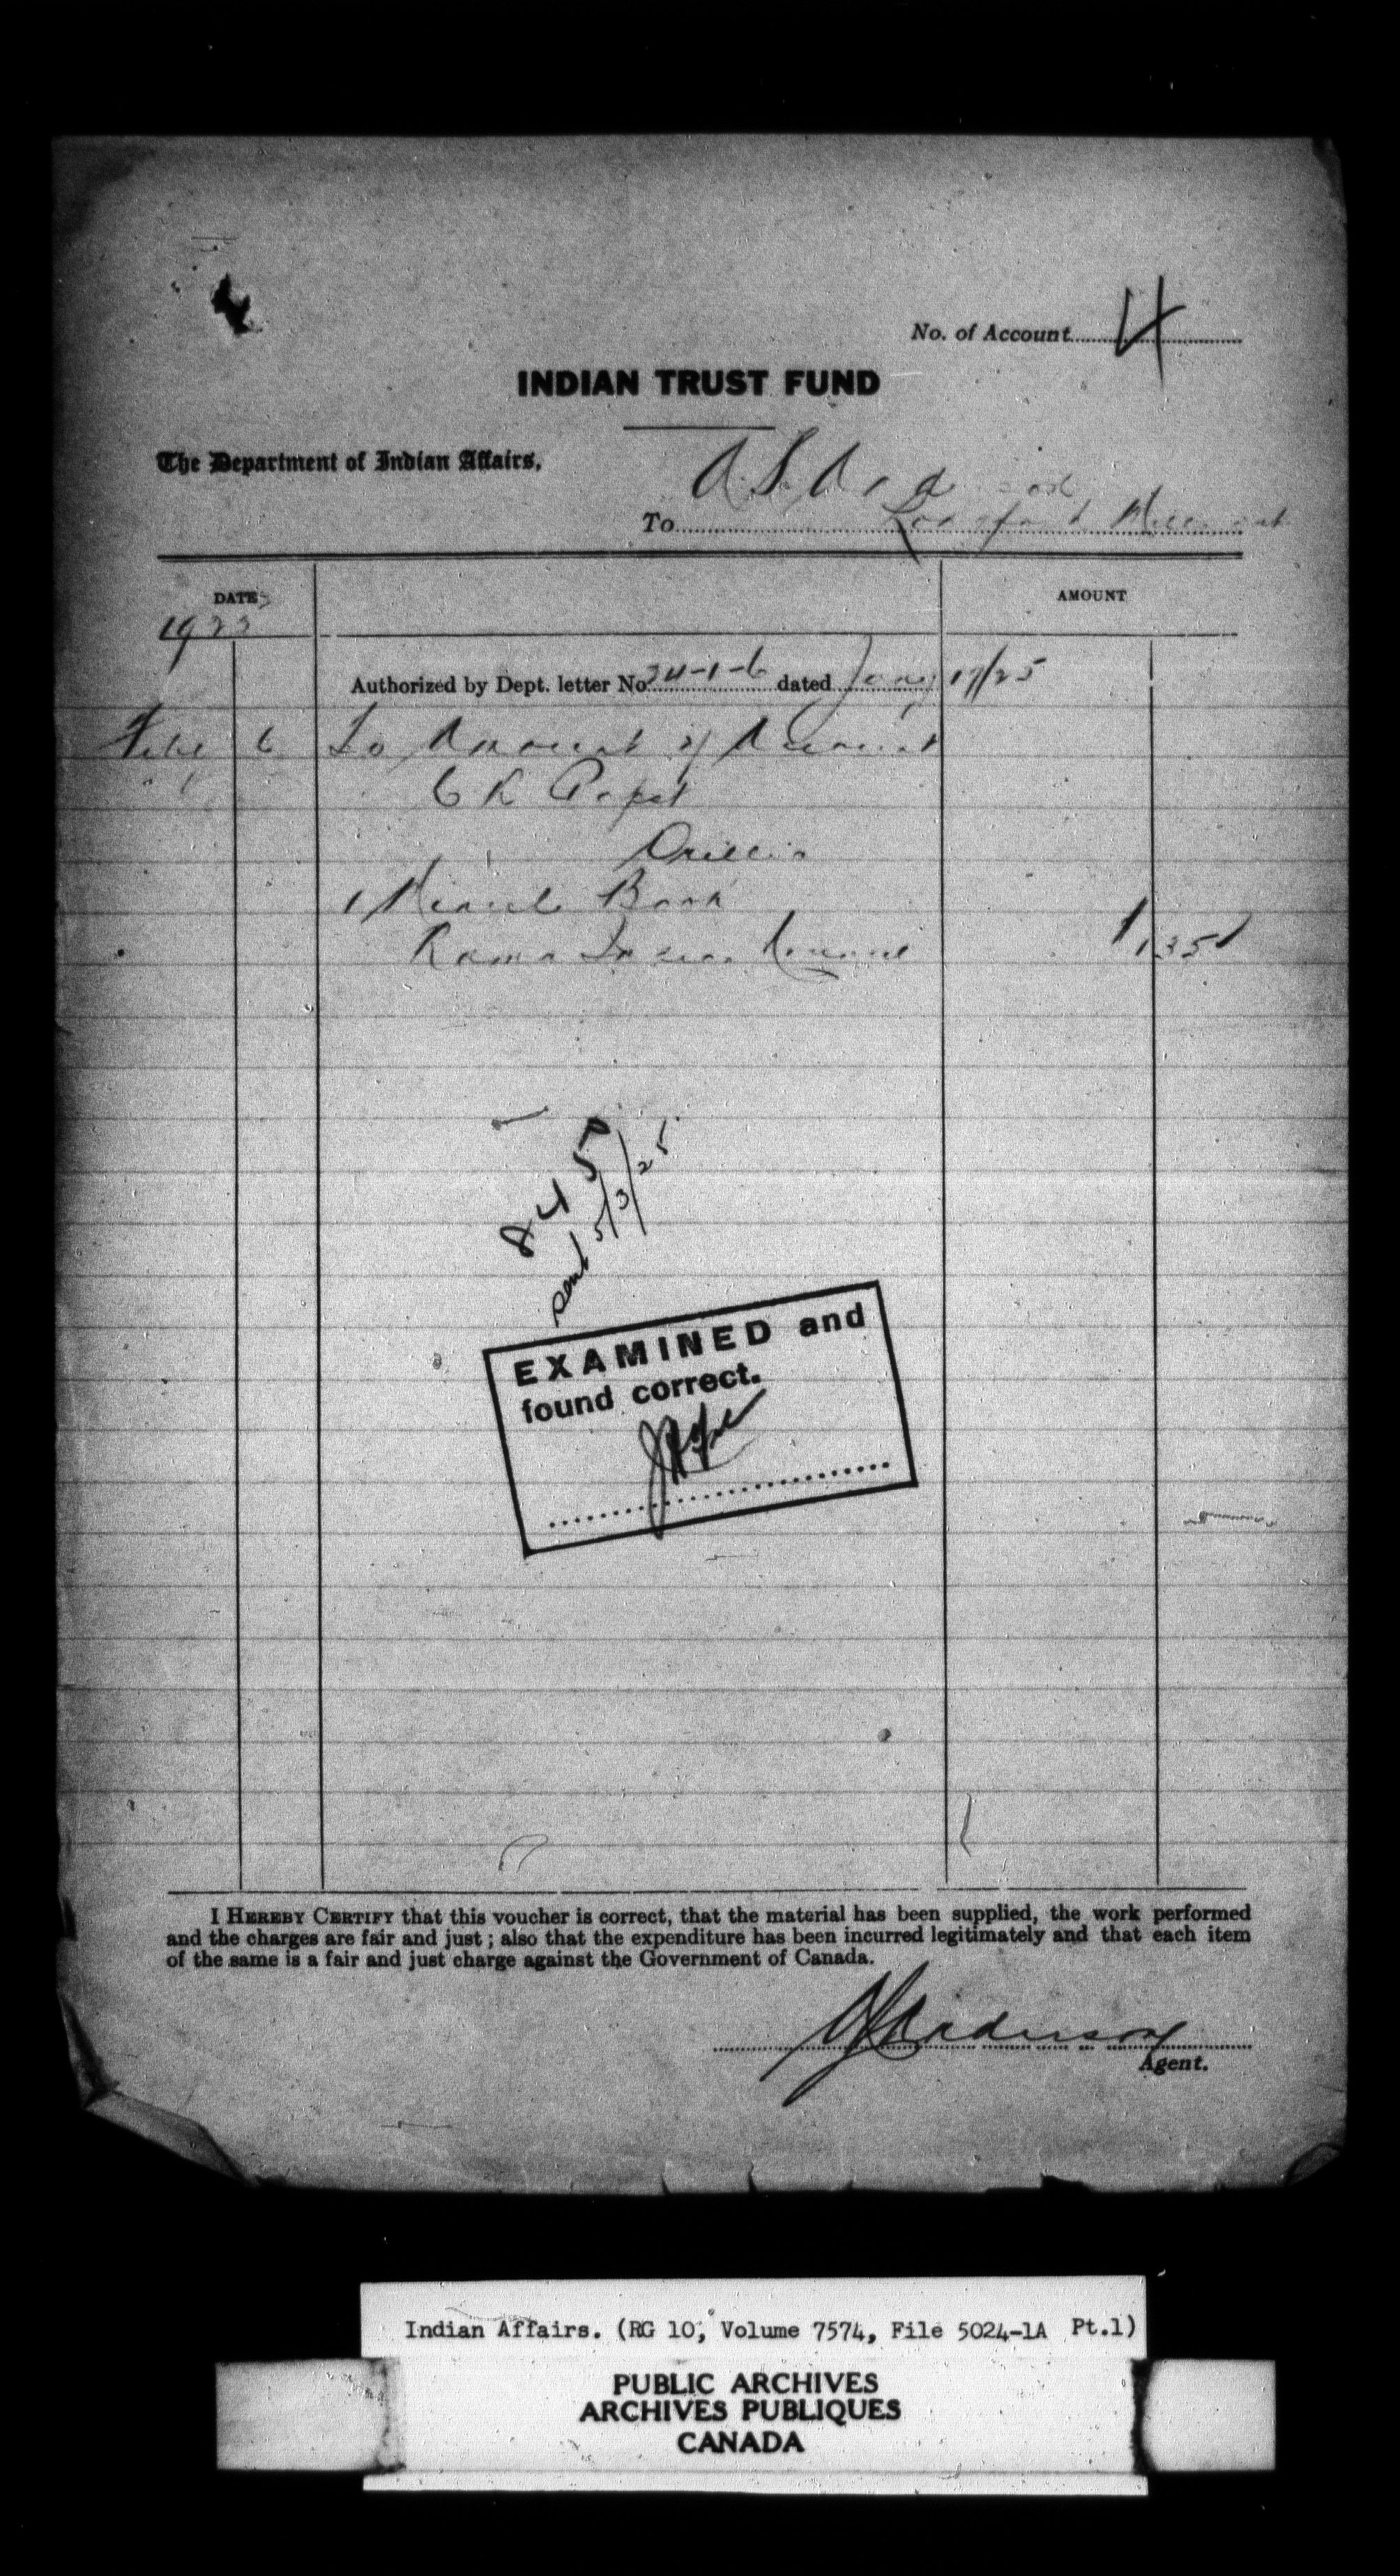 No. of Account 4
INDIAN TRUST FUND
The Department of Indian Affairs,
A S Anderson
To Longford Mills
DATE
AMOUNT
192
Authorized by Dept. letter No. 24-1-6 dated Jany 19/25
Feby 6 To Amount of Account
Orillia
1 Minute Book
Rama Indian Council 1 35
845
sent 5/3/25
EXAMINED and
found correct.
I HEREBY CERTIFY that this voucher is correct, that the material has been supplied, the work performed
and the charges are fair and just; also that the expenditure has been incurred legitimately and that each item
of the same is a fair and just charge against the Government of Canada.
A S Anderson
Agent.
Indian Affairs. (RG 10, Volume 7574, File 5024-1A Pt.1)
PUBLIC ARCHIVES
ARCHIVES PUBLIQUES
CANADA